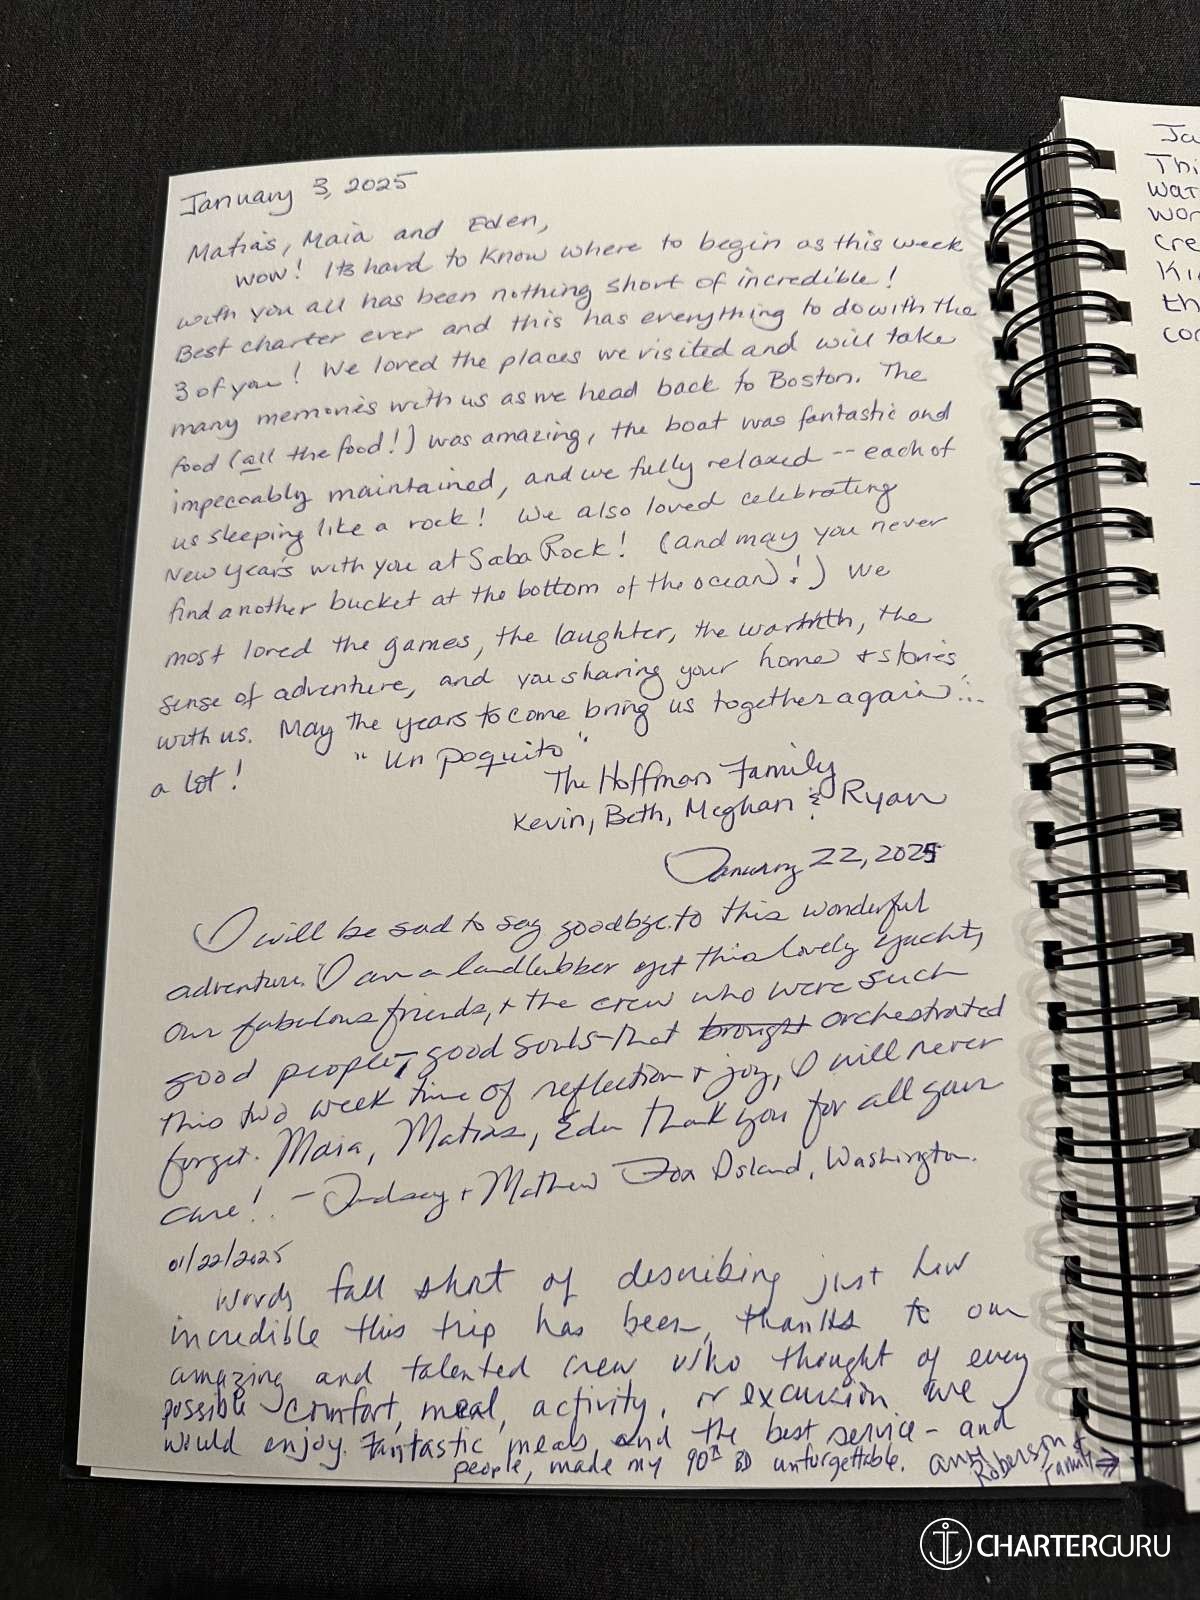 January 3, 2025
Matias, Maia and Eden,
Wow! Its hard to know where to begin as this week
with you all has been nothing short of incredible!
Best charter ever and this has everything to do with the
3 of you! We loved the places we visited and will take
many memories with us as we head back to Boston. The
food (all the food!) was amazing, the boat was fantastic and
impeccably maintained, and we fully relaxed -- each of
us sleeping like a rock! We also loved celebrating
New Years with you at Saba Rock! (and may you never
find another bucket at the bottom of the ocean!) We
most loved the games, the laughter, the warmth, the
sense of adventure, and you sharing your home + stories
with us. May the years to come bring us together again...
a lot! "Un poquito"
The Hoffman Family
Kevin, Beth, Meghan & Ryan
January 22, 2025
I will be sad to say goodbye to this wonderful
adventure. I am a landlubber yet this lovely yacht,
our fabulous friends, + the crew who were such
good people, good souls that brought orchestrated
this two week time of reflection + joy, I will never
forget. Maia, Matias, Eden thank you for all your
care! - Lindsay + Mathew Fox Island, Washington.
01/22/2025
Words fall short of describing just how
incredible this trip has been, thanks to our
amazing and talented crew who thought of every
possible comfort, meal, activity, or excursion we
would enjoy. Fantastic meals, and the best service - and
people, made my 90th BD unforgettable.
Roberson +
Family →
Ja
Thi
wat
wor
cre
Ki
th
co
CHARTERGURU